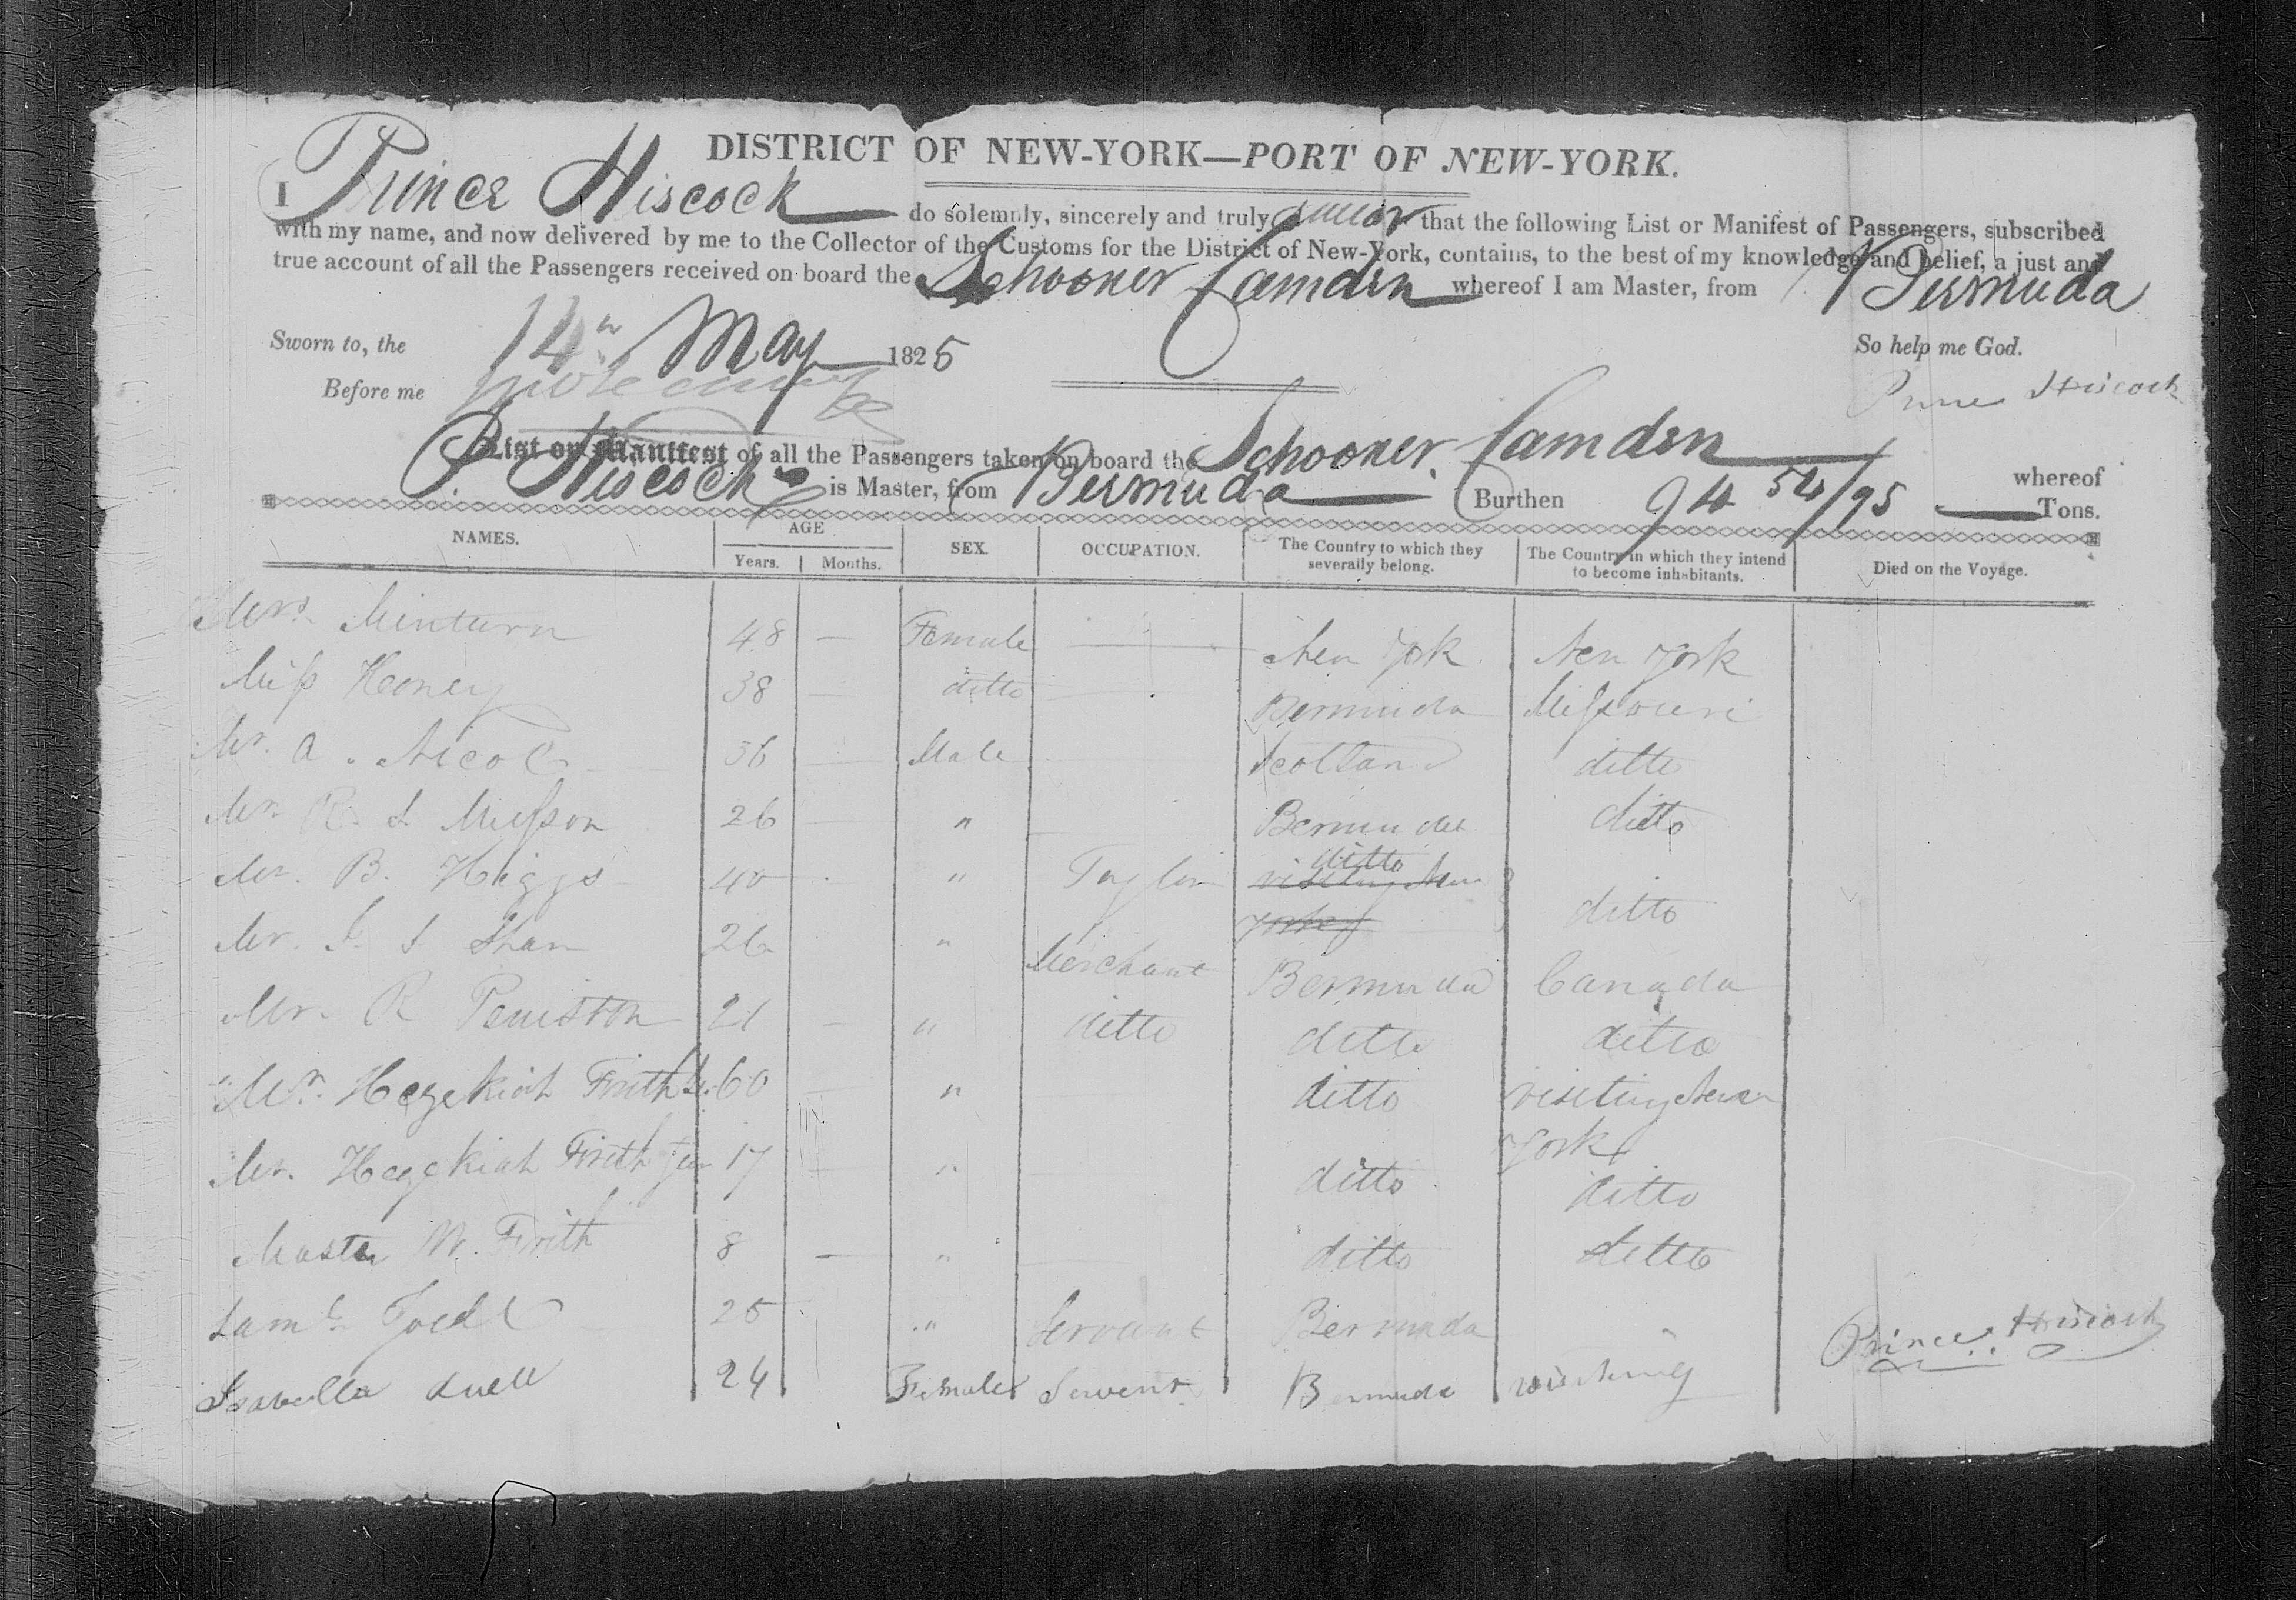 DISTRICT OF NEW-YORK—PORT OF NEW-YORK.
I Prince Hiscock do solemnly, sincerely and truly swear that the following List or Manifest of Passengers, subscribed
with my name, and now delivered by me to the Collector of the Customs for the District of New-York, contains, to the best of my knowledge and belief, a just and
true account of all the Passengers received on board the Schooner Camden whereof I am Master, from Bermuda
Sworn to, the 14th May 1825 So help me God.
Before me Prince Hiscock
List or Manifest of all the Passengers taken on board the Schooner Camden whereof
P Hiscock is Master, from Bermuda Burthen 94 54/95 Tons.
NAMES. AGE Years. Months. SEX. OCCUPATION. The Country to which they severally belong. The Country in which they intend to become inhabitants. Died on the Voyage.
Mrs. Minturn 48 — Female — New York New York
Miss Honey 38 — ditto — Bermuda Missouri
Mr. A. Nicol 36 — Male Scotland ditto
Mr R. S Musson 26 — " — Bermuda ditto
Mr. B. Higgs 40 " Taylor ditto visiting New York ditto
Mr. S 26 " Merchant Bermuda Canada
Mr. R Peniston 21 — " ditto ditto ditto
Mr. Hezekiah Frith Sr. 60 " ditto visiting New York
Mr. Hezekiah Frith Jur 17 — " ditto ditto
Master W. Frith 8 — " — ditto ditto
Saml 25 " Servant Bermuda "
Isabella duell 24 Female Servent Bermuda
Prince Hiscock